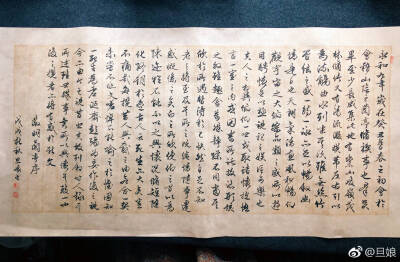 永和九年歲在癸丑暮春之初會於
會稽山陰之蘭亭脩禊事也羣賢
畢至少長咸集此地有崇山峻領茂
林脩竹又有清流激湍暎帶左右引
以為流觴曲水列坐其次雖無絲竹
管弦之盛一觴一詠亦足以暢敘幽
情是日也天朗氣清惠風和暢仰
觀宇宙之大俯察品類之盛所以遊
目騁懷足以極視聽之娛信可樂也
夫人之相與俯仰一世或取諸懷抱悟
言一室之內或因寄所託放浪形骸
之外雖趣舍萬殊靜躁不同當其
欣於所遇暫得於己快然自足不知
老之將至及其所之既倦情隨事遷
感慨係之矣向之所欣俛仰之間以為
陳迹猶不能不以之興懷況脩短隨
化終期於盡古人云死生亦大矣豈
不痛哉每攬昔人興感之由若合一契
未嘗不臨文嗟悼不能喻之於懷固知
一死生為虛誕齊彭殤為妄作後之視
今亦由今之視昔悲夫故列敘時人錄其
所述雖世殊事異所以興懷其致一也
後之攬者亦將有感於斯文
蘭亭序
戊戌秋
@旦娘